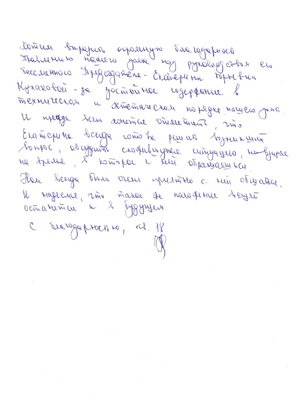 Хотим выразить огромную благодарность
Правлению нашего дома под руководством его
бессменного Председателя - Екатерины Юрьевны
за достойное содержание в
техническом и эстетическом порядке нашего дома.
И прежде всего хочется отметить, что
Екатерина всегда готова решить возникший
вопрос, обсудить сложившуюся ситуацию, не взирая
на время, в которое к ней обращаешься.
Нам всегда было очень приятно с ней общаться.
И надеемся, что такое же положение вещей
останется и в будущем.
С благодарностью, кв. 18